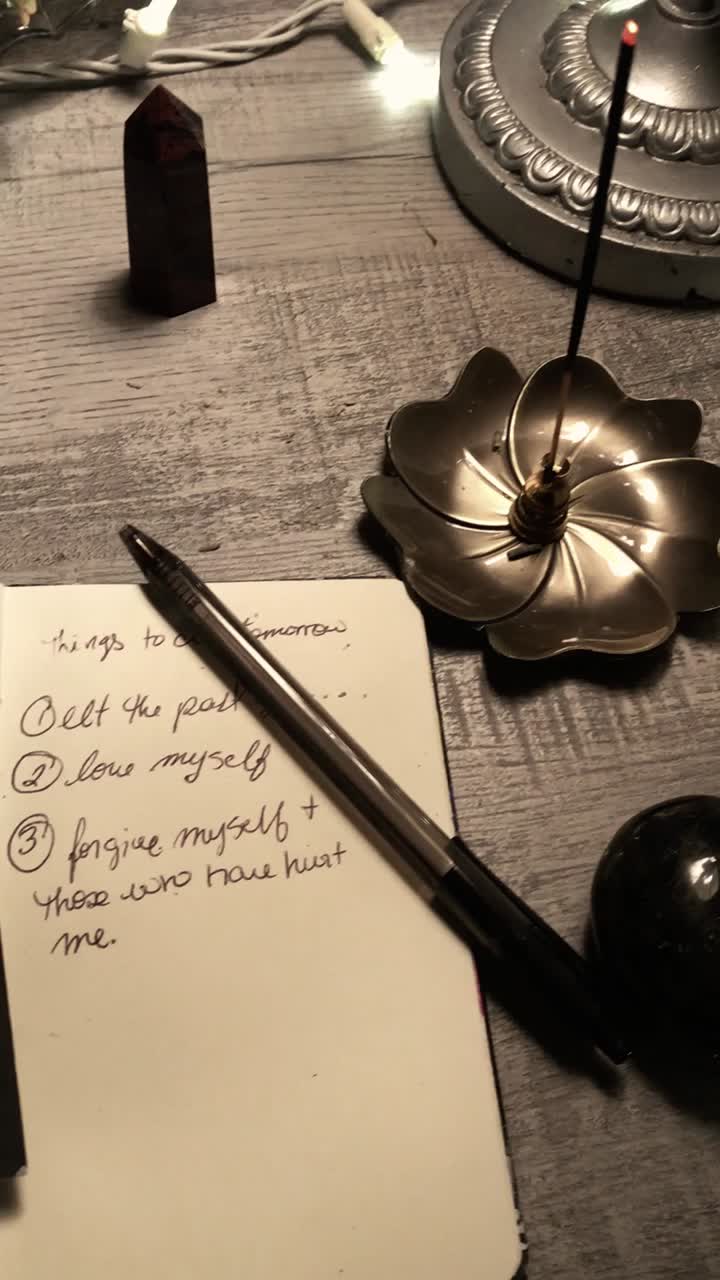 things to do tomorrow
① elt the past .....
② love myself
③ forgive myself +
those who have hurt
me.